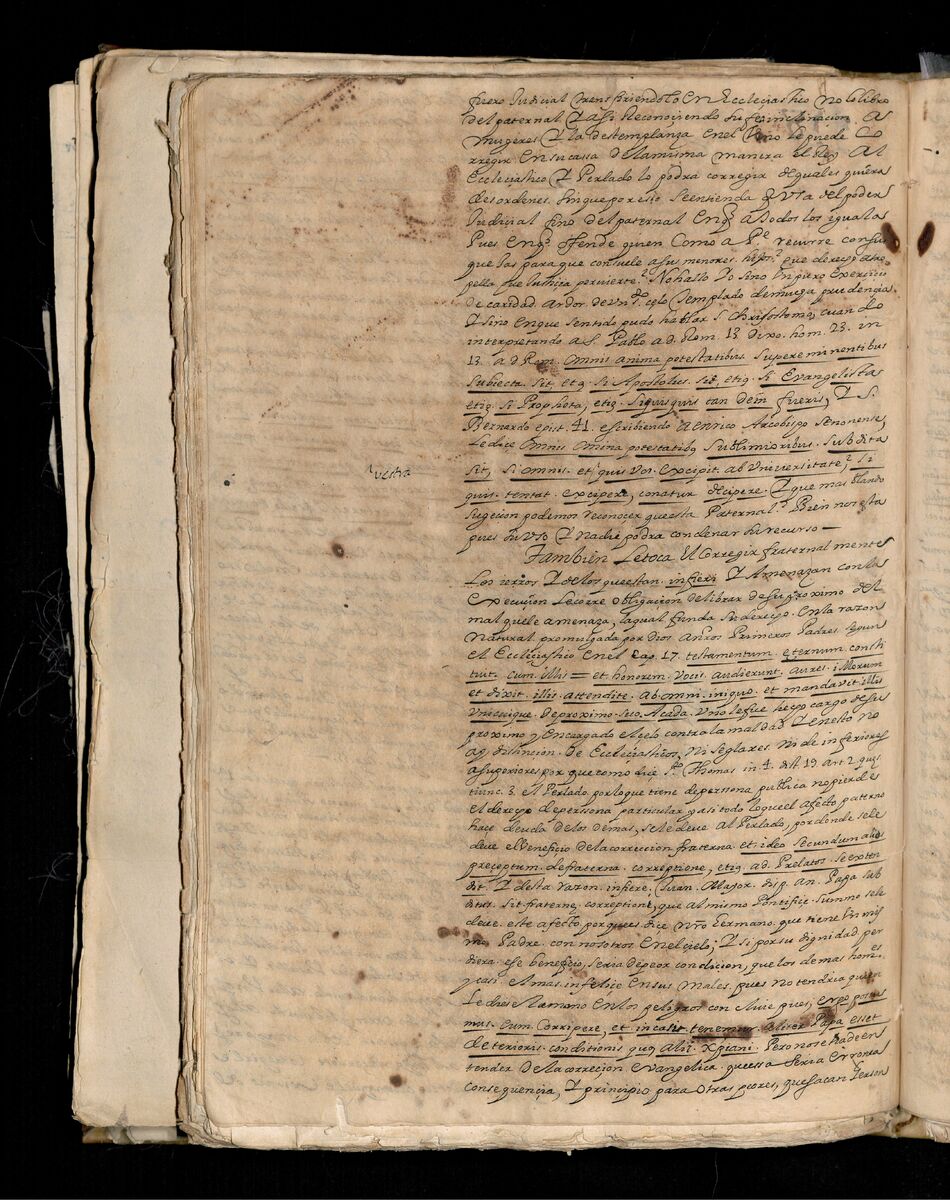 fuero Judicial transfiriendolo en Ecclesiastico no lo libro
del paternal, Y assi Reconociendo su fer inclinacion a
mugeres Y la destemplanza en el vino le puede Co
rregir en su cassa De la misma manera el Rey Al
Ecclesiastico Y Perlado lo podra corregir de iguales quiera
desordenes sin que por esto se entienda q Vsa del poder
Judicial sino del paternal en q.e a todos los iguala
Pues en q.e ofende quien Como a P.e recurre con sus
quejas para que consuele a sus menores hijos? que derecho atro
pella que Justicia pervierte? No hallo Yo sino Un puro Exercicio
de caridad. Ardor de Un d.e zelo templado de mucha prudencia
Y sino en que sentido pudo hablar S. Chrisostomo, cuando
interpretando a S. Pablo ad. Rom. 13 dixo hom. 23. in
13. ad Rom. omnis anima potestatibus Supereminentibus
Subiecta sit, etiã. Si Apostolus sis, etiã. Si Evangelista
etiã. Si Propheta, etiã. Siquisquis tandem fueris, Y S.
Bernardo epist. 41. escribiendo a Enrico Arcobispo Senonense,
Le dice Omnis Omina potestatibq Sublimioribus. Subdita
sit, Si omnis. et quis Vos. excipit. ab Universitate? Si
quis. tentat. excipere, conatur decipere. Y que mas blando
sugecion podemos reconocer que esta Paternal? Bien nos esta
pues su Vso Y nadie podra condenar hi recurso —
Vestra
Tambien Le toca el Corregir fraternal mente
Los ierros Y de los que estan. infieri Y Amenazan con la
execucion Le corre obligacion de librar de su proximo del
mal que le amenaza, la qual funda su derecho. en la razon
natural promulgada por Dios a nros Primeros Padres segun
el Ecclesiastico en el Cap. 17. testamentum eternum consti
tuit. cum illis = et honorem. Vocis. audierunt. aures. illorum
et dixit. illis. attendite. ab omni. iniquo. et mandavit illis
Unicuique. de proximo. suo. A cada. Uno le hice hizo cargo de su
proximo y encargado el zelo contra la maldad Y en esto no
ay distincion. De Ecclesiasticos, Ni Seglares. Ni de inferiores
a superiores por que como dice S.to Thomas in 4. dist. 19 Art. 2 ques
tiunc. 3. el Perlado por lo que tiene de persona publica no pierde
el derecho de persona particular y asi todo lo que el afecto paterno
hace deuda de los demas, se le deve al Perlado, por donde se le
deve el Veneficio de la correccion fraterna. et ideo Secundum aliq
preceptum. de fraterna. correptione, etiq. ad. Prelatos. Se exten
dit. Y desta razon. infiere, Juan. Major. disp. An. Papa sub
ditus. sit fraterne, correptioni, que al mismo Pontifice. Summo se le
deve. este afecto porque es dice nr̃o hermano. que tiene Un mis
mo Padre. con nosotros en el cielo; Y si por su dignidad. per
diera. ese beneficio, seria de peor condicion, que los demas hom.es
y casi. el mas. infelice en sus males. pues no tendria quien
Le diese la mano en los peligros con lluvie pues, ergo possu
mus. eum Corripere, et in casu. tenemur. aliter Papa esset
deterioris. conditionis quã alii. Xpiani. Pero no se ha de en
tender de la correcion evangelica. que essa seria erronea
consequencia, Y principio para otras peores, que sacan Gerson